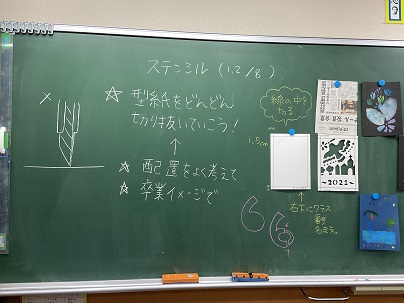 ステンシル (1.2/8)
×
☆ 型紙をどんどん
切り抜いていこう!
↑
☆ 配置をよく考えて
☆ 卒業イメージで
線の中を
切る
1.5cm
~2021~
↑
右下にクラス
番号
名まえ
66